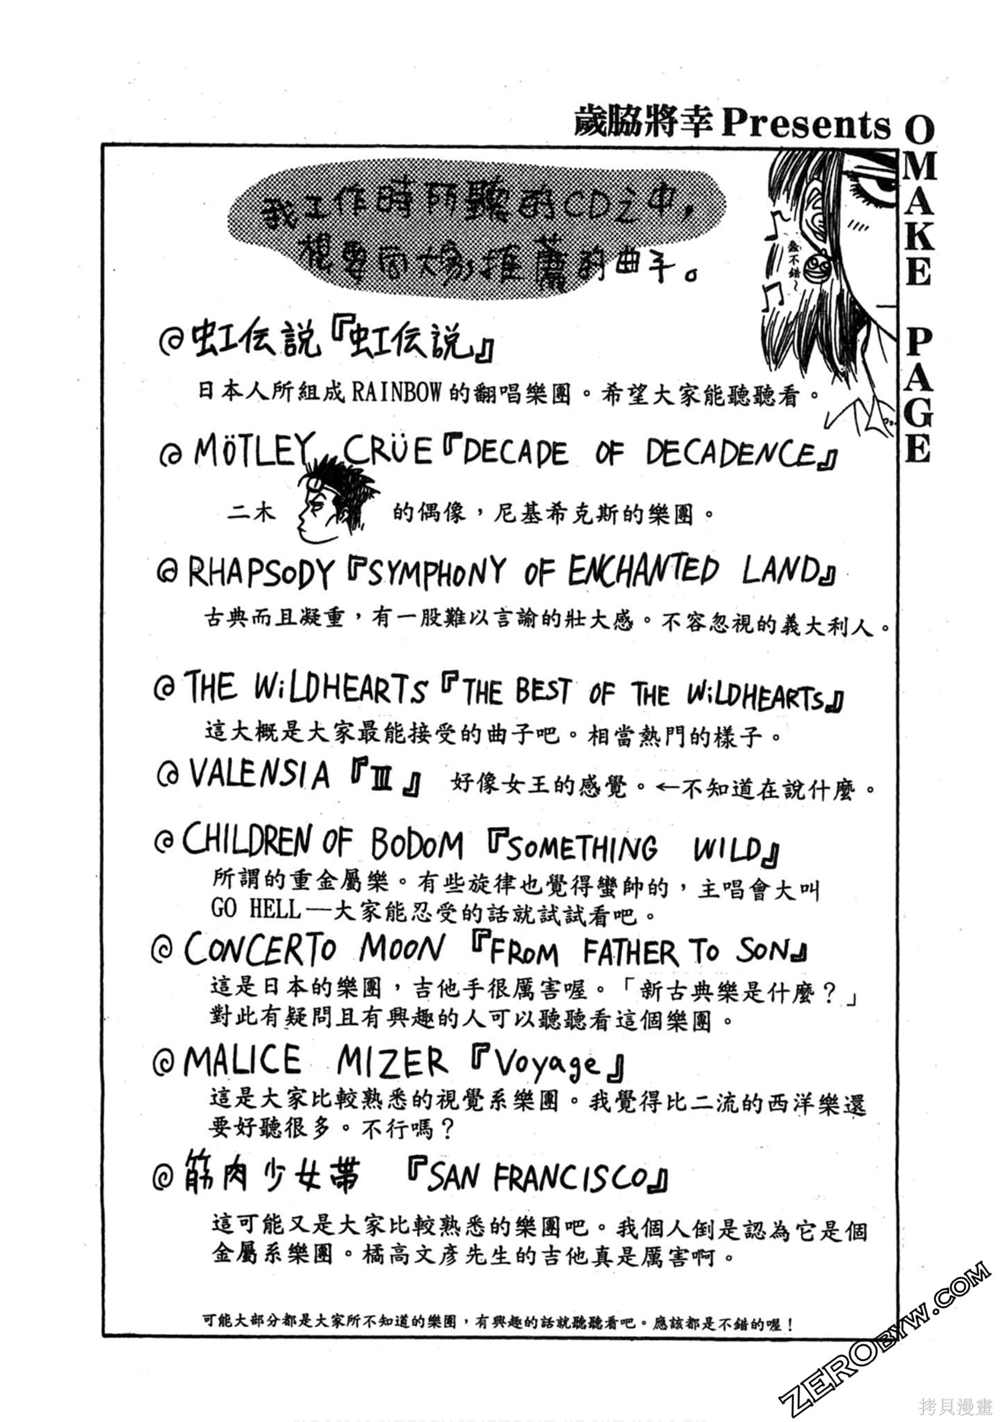 歲脇將幸Presents
OMAKE PAGE
我工作時所聽的CD之中，
想要向大家推薦的曲子。
蠻不錯～
@虹伝説『虹伝説』
日本人所組成RAINBOW的翻唱樂團。希望大家能聽聽看。
@MÖTLEY CRÜE『DECADE OF DECADENCE』
二木 的偶像，尼基希克斯的樂團。
@RHAPSODY『SYMPHONY OF ENCHANTED LAND』
古典而且凝重，有一股難以言諭的壯大感。不容忽視的義大利人。
@THE WiLDHEARTS『THE BEST OF THE WiLDHEARTS』
這大概是大家最能接受的曲子吧。相當熱門的樣子。
@VALENSIA『Ⅲ』 好像女王的感覺。←不知道在說什麼。
@CHILDREN OF BODOM『SOMETHING WILD』
所謂的重金屬樂。有些旋律也覺得蠻帥的，主唱會大叫
GO HELL—大家能忍受的話就試試看吧。
@CONCERTO MOON『FROM FATHER TO SON』
這是日本的樂團，吉他手很厲害喔。「新古典樂是什麼？」
對此有疑問且有興趣的人可以聽聽看這個樂團。
@MALICE MIZER『Voyage』
這是大家比較熟悉的視覺系樂團。我覺得比二流的西洋樂還
要好聽很多。不行嗎？
@筋肉少女帯 『SAN FRANCISCO』
這可能又是大家比較熟悉的樂團吧。我個人倒是認為它是個
金屬系樂團。橘高文彥先生的吉他真是厲害啊。
可能大部分都是大家所不知道的樂團，有興趣的話就聽聽看吧。應該都是不錯的喔！
ZEROBYW.COM
拷貝漫畫